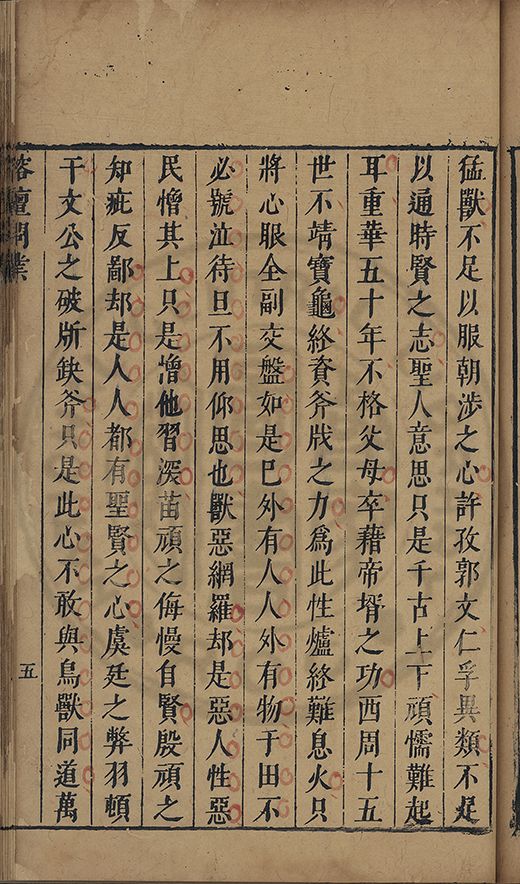 猛獸不足以服朝涉之心許孜郭文仁孚異類不足
以通時賢之志聖人意思只是千古上下頑懦難起
耳重華五十年不格父母卒藉帝壻之功西周十五
世不靖寶龜終賚斧戕之力爲此性爐終難息火只
將心服全副交盤如是已外有人人外有物于田不
必號泣待旦不用仰思也獸惡網羅却是惡人性惡
民憎其上只是憎他習深苗頑之侮慢自賢殷頑之
知疵反鄙却是人人都有聖賢之心虞廷之弊羽頓
干文公之破斨缺斧只是此心不敢與鳥獸同道萬
榕壇問業
五